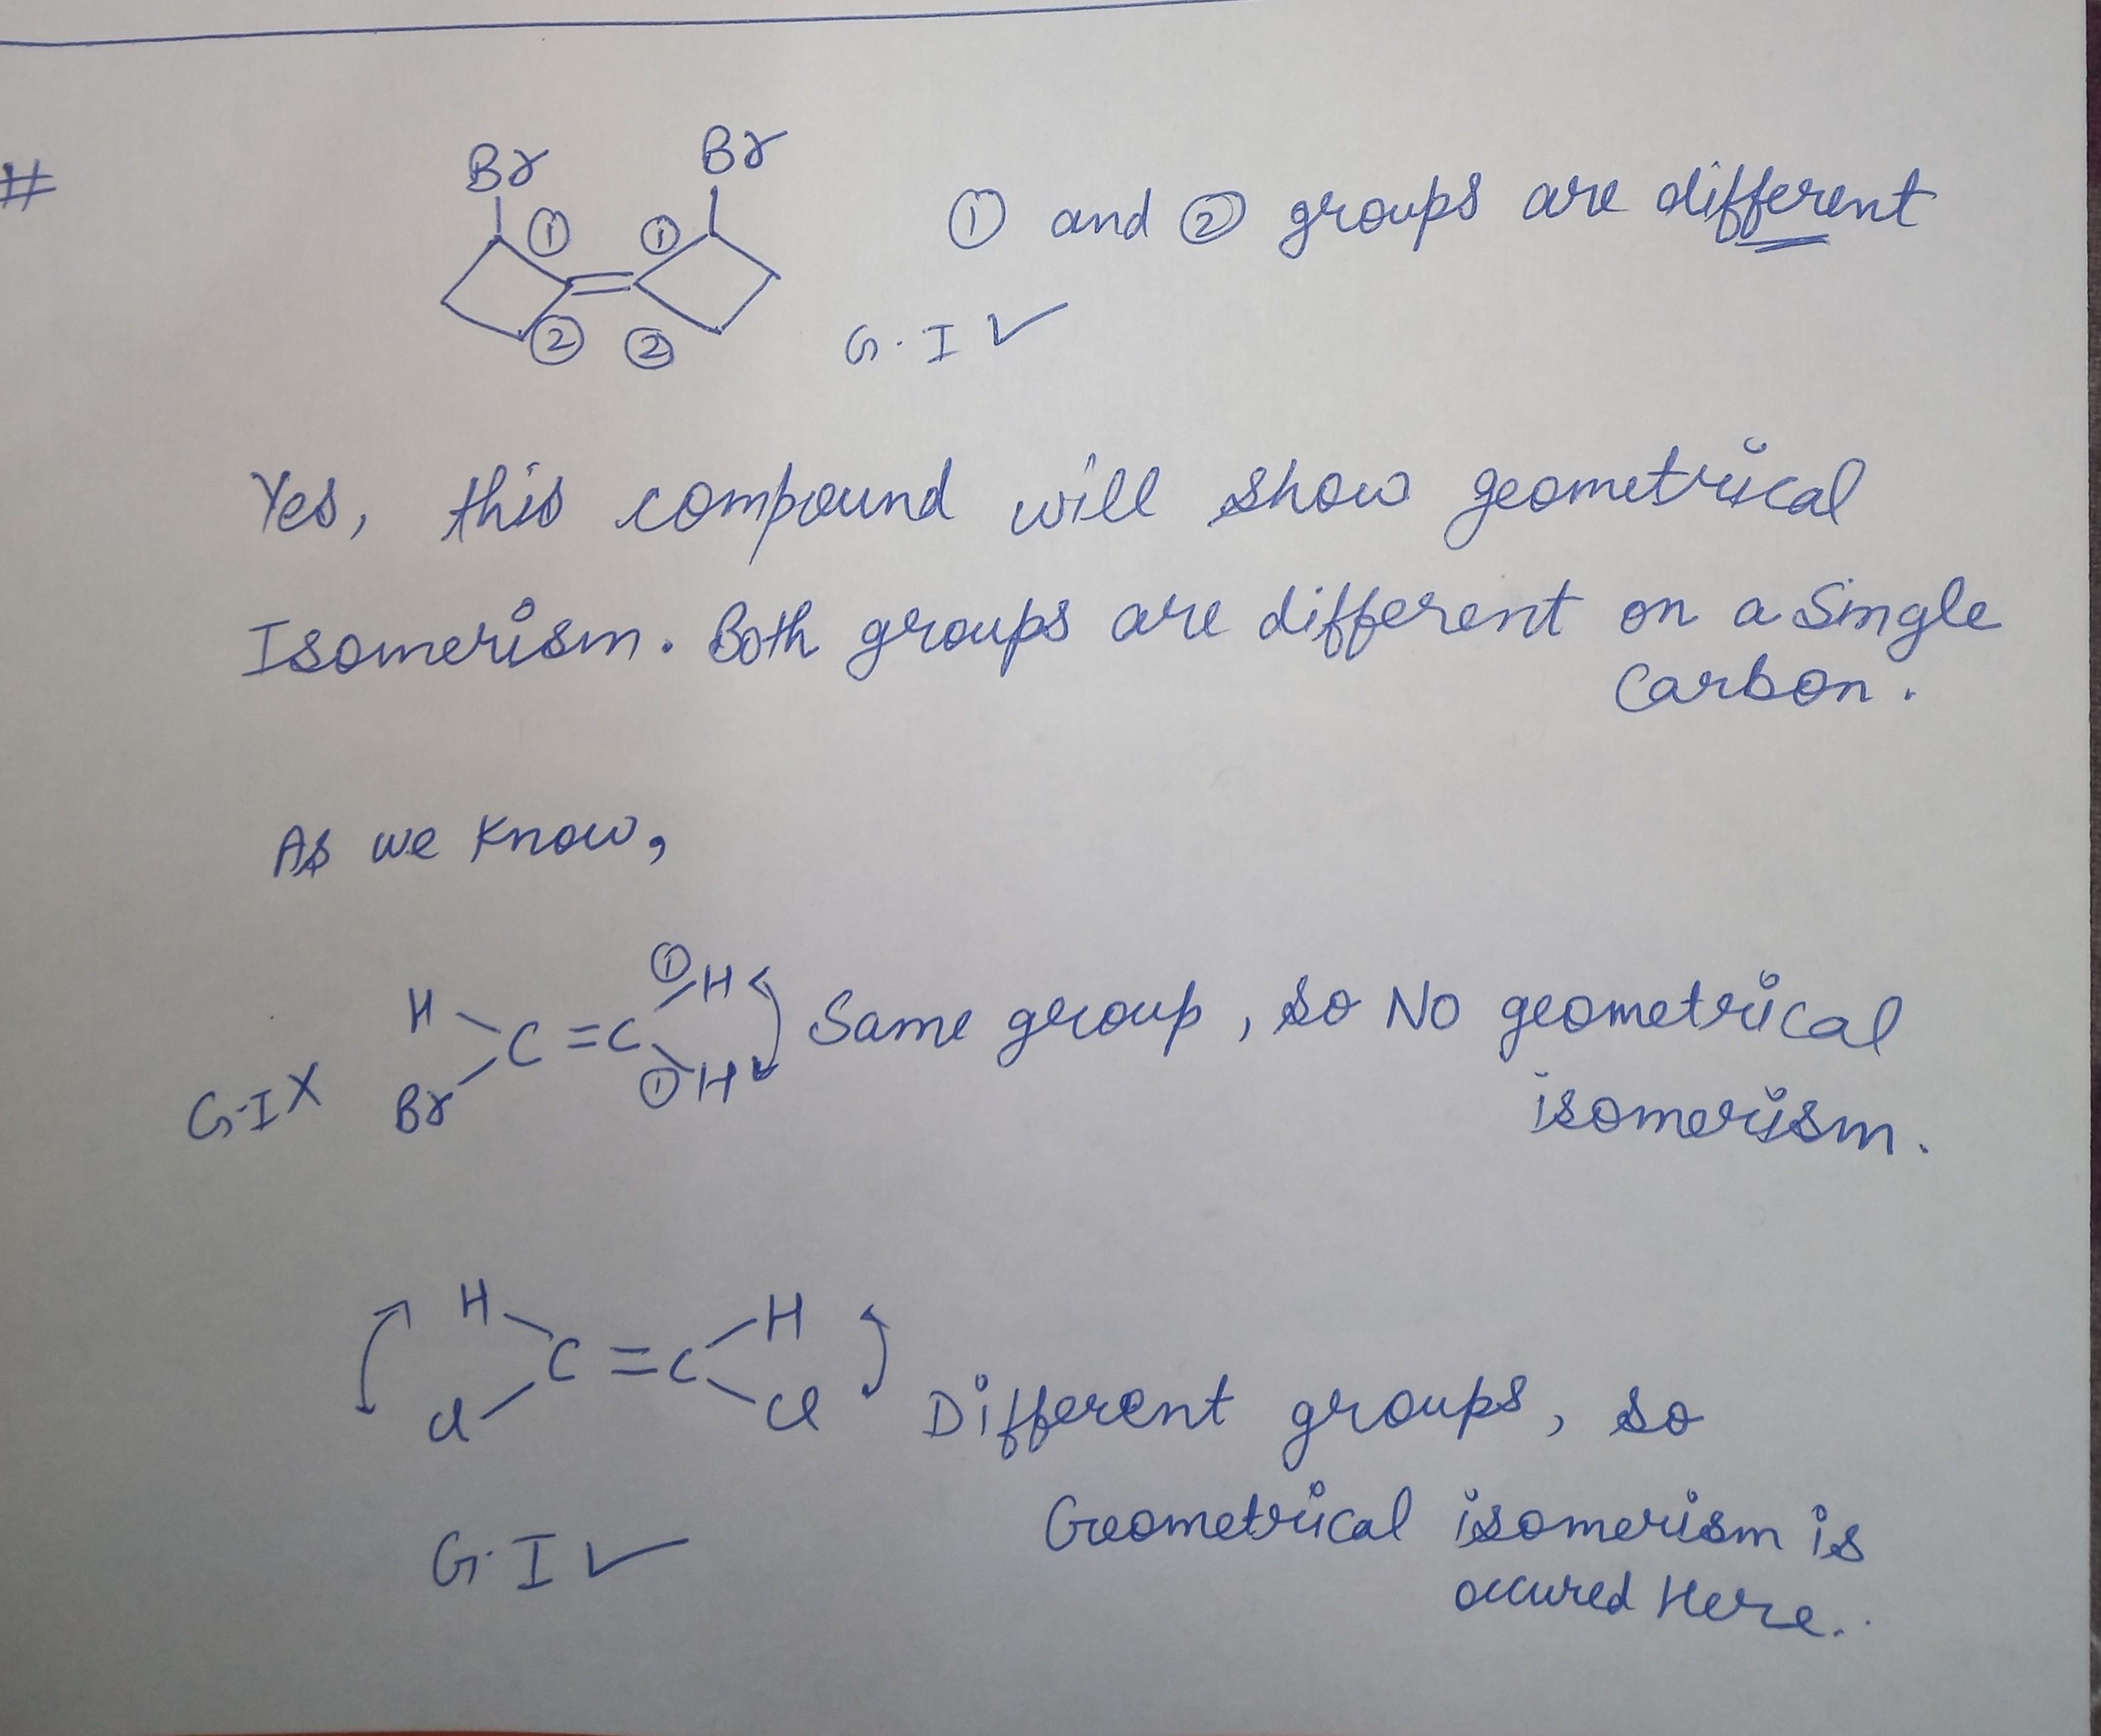 #
Br Br
① ① ① and ② groups are different
② ② G.I ✓
Yes, this compound will show geometrical
Isomerism. Both groups are different on a Single
Carbon.
As we know,
① H
H C = C Same group, so No geometrical
G.I X Br ① H isomerism.
H H
C = C
Cl Cl Different groups, so
G.I ✓ Geometrical isomerism is
occured Here..